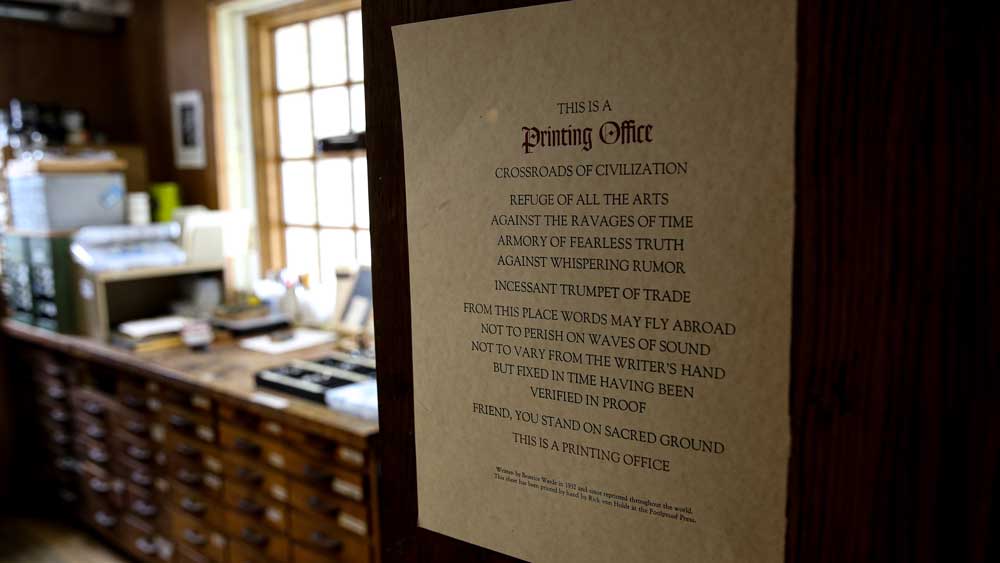 THIS IS A
Printing Office
CROSSROADS OF CIVILIZATION
REFUGE OF ALL THE ARTS
AGAINST THE RAVAGES OF TIME
ARMORY OF FEARLESS TRUTH
AGAINST WHISPERING RUMOR
INCESSANT TRUMPET OF TRADE
FROM THIS PLACE WORDS MAY FLY ABROAD
NOT TO PERISH ON WAVES OF SOUND
NOT TO VARY FROM THE WRITER'S HAND
BUT FIXED IN TIME HAVING BEEN
VERIFIED IN PROOF
FRIEND, YOU STAND ON SACRED GROUND
THIS IS A PRINTING OFFICE
Written by Beatrice Warde in 1932 and since reprinted throughout the world.
This sheet has been printed by hand by Rick von Holdt at the Foolproof Press.